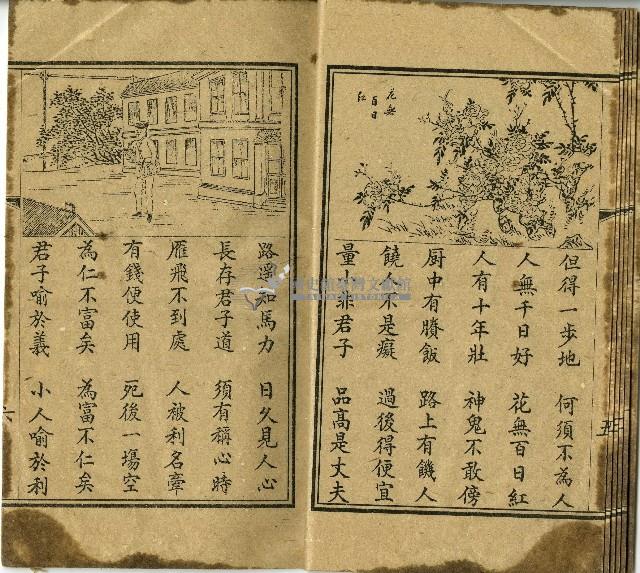 花無
百日
紅
但得一步地　何須不為人
人無千日好　花無百日紅
人有十年壯　神鬼不敢傍
厨中有賸飯　路上有饑人
饒人不是癡　過後得便宜
量小非君子　品高是丈夫
五
路遥知馬力　日久見人心
長存君子道　須有稱心時
雁飛不到處　人被利名牽
有錢便使用　死後一場空
為仁不富矣　為富不仁矣
君子喻於義　小人喻於利
六